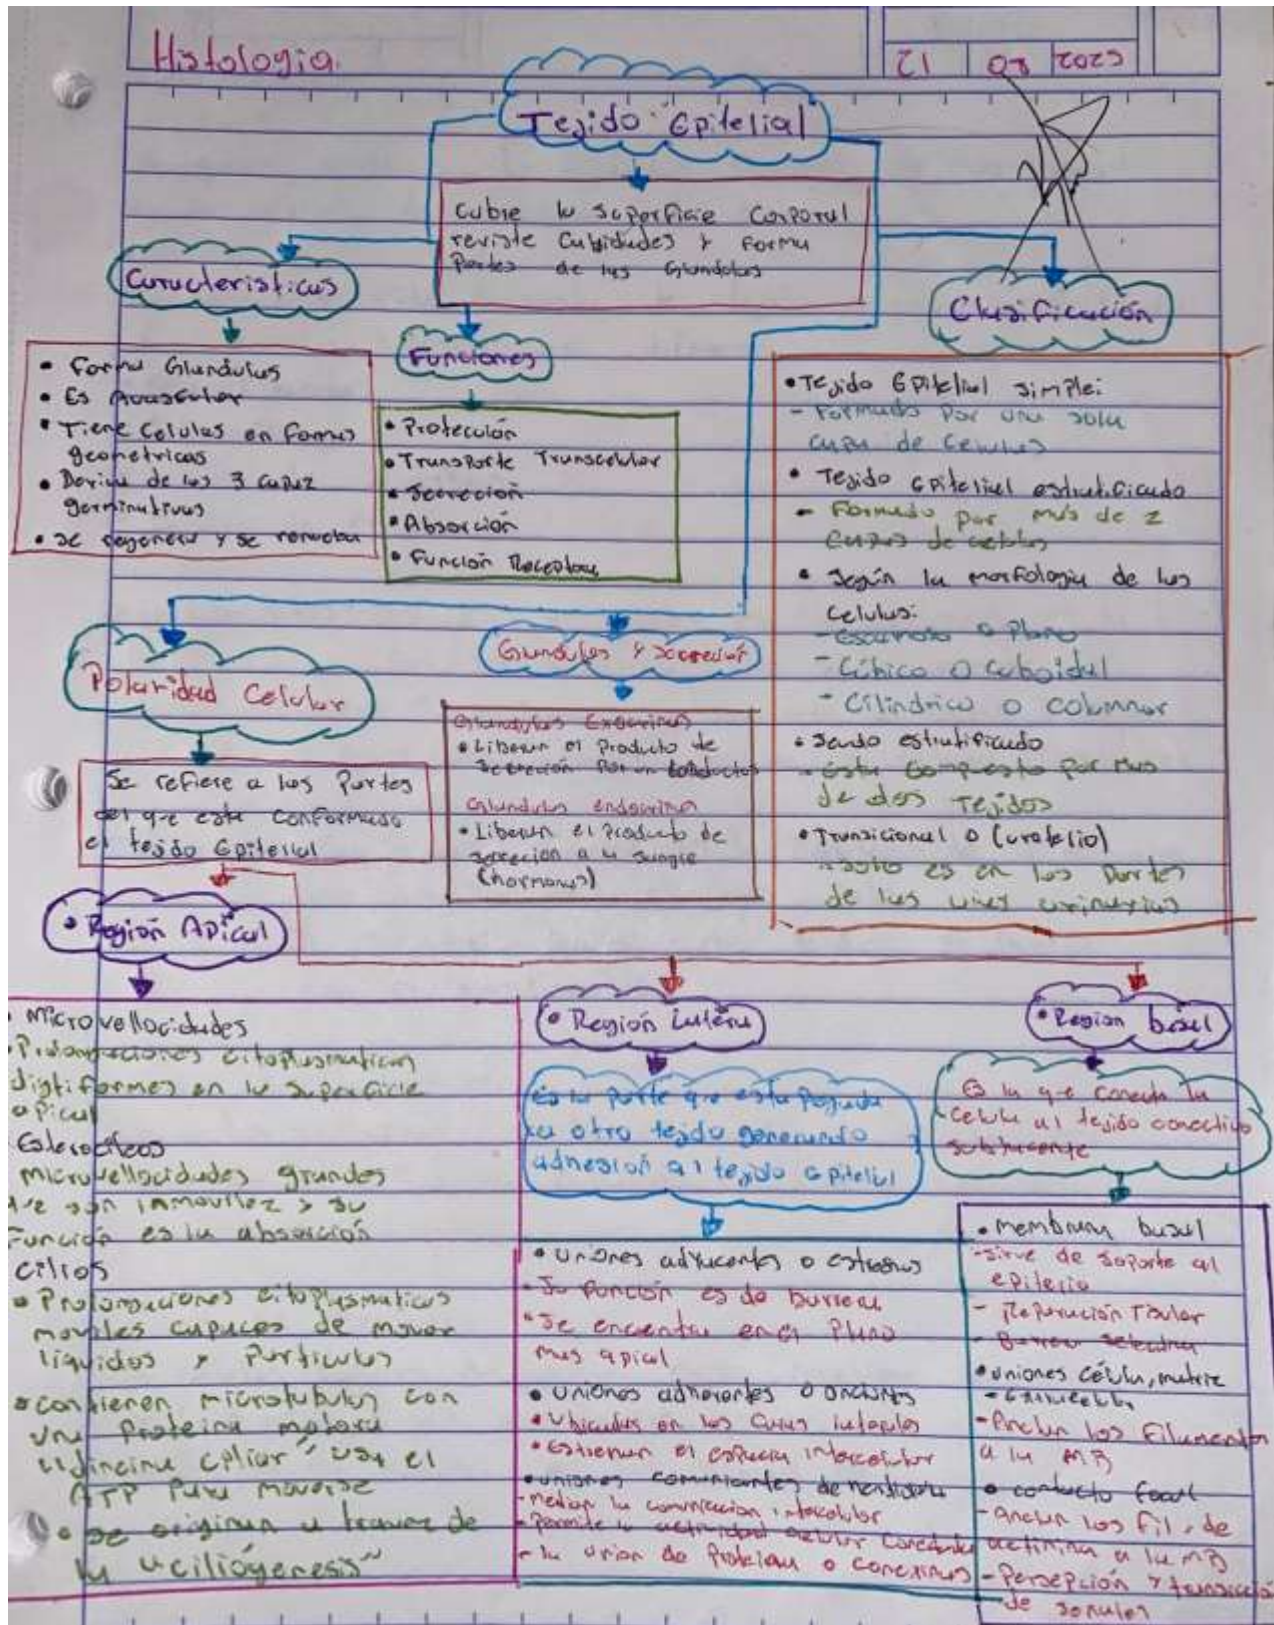 Histologia.
12 | 08 | 2025
Tejido Epitelial
Cubre la superficie corporal
reviste Cavidades y forma
Partes de las Glandulas
Caracteristicas
• Forma Glandulas
• Es Avascular
• Tiene Celulas en formas
geometricas
• Deriva de las 3 capaz
germinativas
• se regenera y se renueva
Funciones
• Protección
• Transporte Transcelular
• Secreción
• Absorción
• Función Receptora
Clasificación
• Tejido Epitelial simple:
- Formado Por una sola
capa de Celulas
• Tejido Epitelial estratificado
- Formado por más de 2
Capas de celulas
• Según la morfologia de las
Celulas:
- Escamoso o Plano
- Cúbico o cuboidal
- Cilindrico o columnar
• Seudo estratificado
- esta compuesto por mas
de dos Tejidos
• Transicional o (urotelio)
- solo es en las partes
de las vias urinarias
Polaridad Celular
Se refiere a las Partes
del que esta conformado
el tejido Epitelial
Glandulas y secreción
Glandulas Exocrinas
• Liberan el Producto de
secreción Por un conducto
Glandulas endocrinas
• Liberan el Producto de
secreción a la sangre
(hormonas)
• Región Apical
Microvellocidades
Prolongaciones citoplasmaticas
digtiformes en la superficie
apical
Esterocileos
microvellocidades grandes
que son inmovilez y su
Función es la absorción
cilios
• Prolongaciones citoplasmaticas
moviles capaces de mover
liquidos y Particulas
• contienen microtubulos con
una Proteina motora
"dineina ciliar" usa el
ATP Para moverse
• se originan a travez de
la "ciliogenesis"
• Región Latera
Es la parte que esta Pegada
a otro tejido generando
adhesion al tejido epitelial
• Uniones adyacentes o estrechas
- Su función es de barrera
• Se encentra en el Plano
mas apical
• Uniones adherentes o anclantes
• Ubicadas en las Caras laterales
• Estienen el espacio intercelular
• uniones comunicantes de hendidura
- median la comunicacion intercelular
- Permite la actividad celular coordinada
- la union de Proteinas o conexinas
• Region basal
Es la que conecta la
Celula al tejido conectivo
subyacente
• membrana basal
- sirve de soporte al
epitelio
- Reparación Tisular
- Barrera selectiva
• uniones célula, matriz
- Anclan los filamentos
a la MB
• contacto focal
- anclan los fil. de
actinina a la MB
- Persepción y transducción
de señales